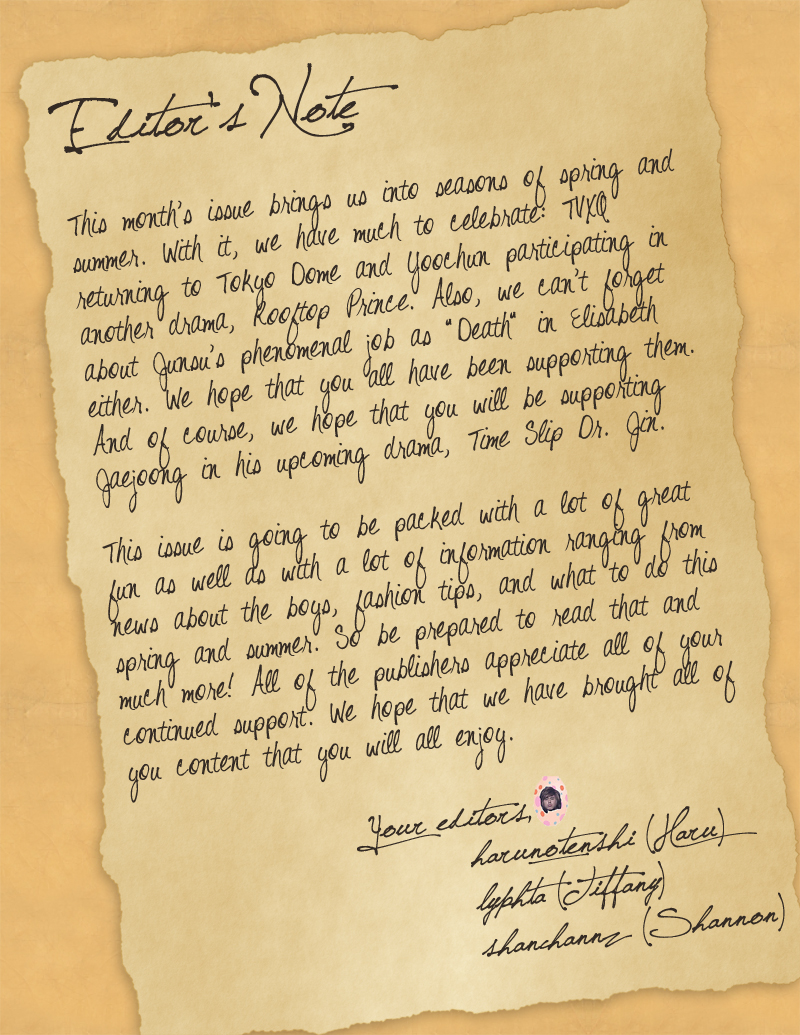 Editor's Note
This month's issue brings us into seasons of spring and
summer. With it, we have much to celebrate: TVXQ
returning to Tokyo Dome and Yoochun participating in
another drama, Rooftop Prince. Also, we can't forget
about Junsu's phenomenal job as "Death" in Elisabeth
either. We hope that you all have been supporting them.
And of course, we hope that you will be supporting
Jaejoong in his upcoming drama, Time Slip Dr. Jin.
This issue is going to be packed with a lot of great
fun as well as with a lot of information ranging from
news about the boys, fashion tips, and what to do this
spring and summer. So be prepared to read that and
much more! All of the publishers appreciate all of your
continued support. We hope that we have brought all of
you content that you will all enjoy.
Your editors,
harunotenshi (Haru)
lyphta (Tiffany)
shanchannz (Shannon)